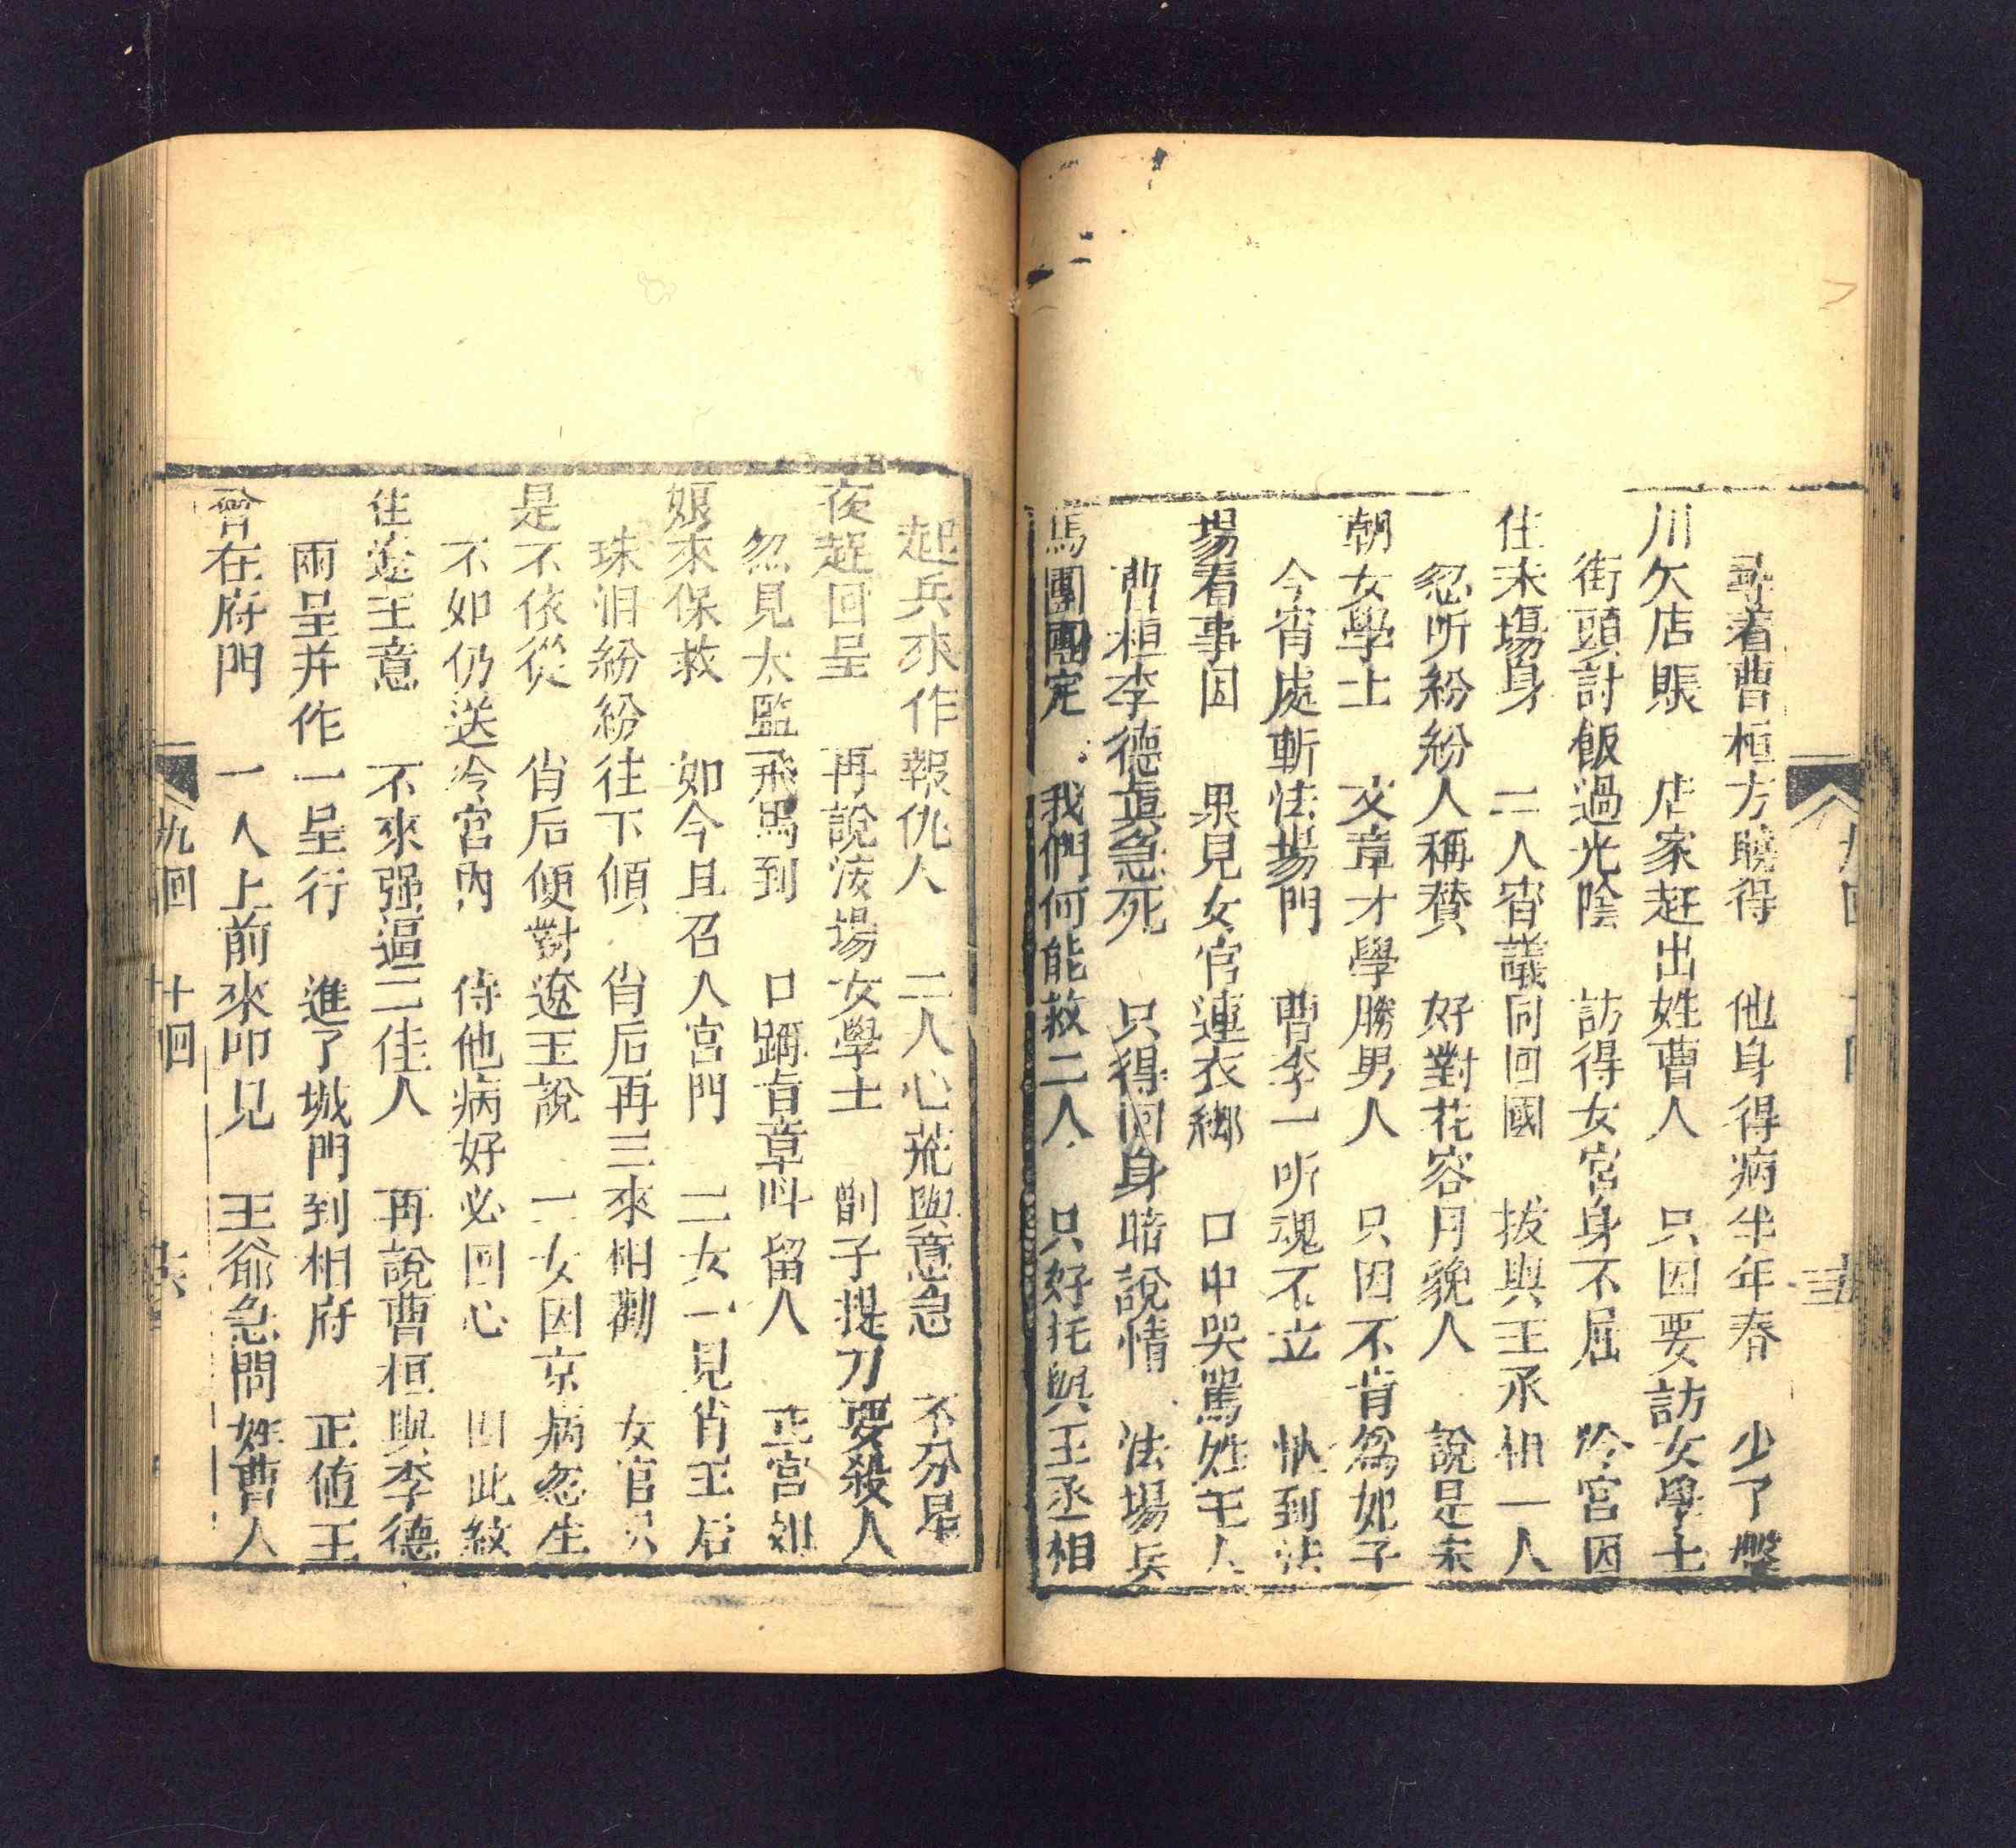 尋着曹桓方曉得 他身得病半年春 少了盤
川欠店賬 店家赶出姓曹人 只因要訪女學士
街頭討飯過光陰 訪得女官身不屈 冷宮因
住未塲身 二人宵議同回國 拔與王丞相一人
忽听紛紛人稱贊 好對花容月貌人 說是宋
朝女學士 文章才學勝男人 只因不肯爲妃子
今宵處斬法場門 曹李一听魂不立 忙到法
場看事因 果見女官連衣綁 口中哭罵姓王人
曹桓李德眞急死 只得回身暗說情 法場兵
馬團團定 我們何能救二人 只好托與王丞相
九回 十回
起兵來作報仇人 二人心荒與意急 不分星
夜趕回呈 再說法場女學士 劊子提刀要殺人
忽見太監飛馬到 口啣旨章呌留人 正宮娘
娘來保救 如今且召入宮門 二女一見肖王后
珠泪紛紛往下傾 肖后再三來相勸 女官只
是不依從 肖后便對遼王說 一女因京病忽生
不如仍送冷宮內 侍他病好必回心 因此紋
住遼王意 不來强逼二佳人 再說曹桓與李德
兩呈并作一呈行 進了城門到相府 正值王
會在府門 一人上前來叩見 王爺急問姓曹人
九回 十回